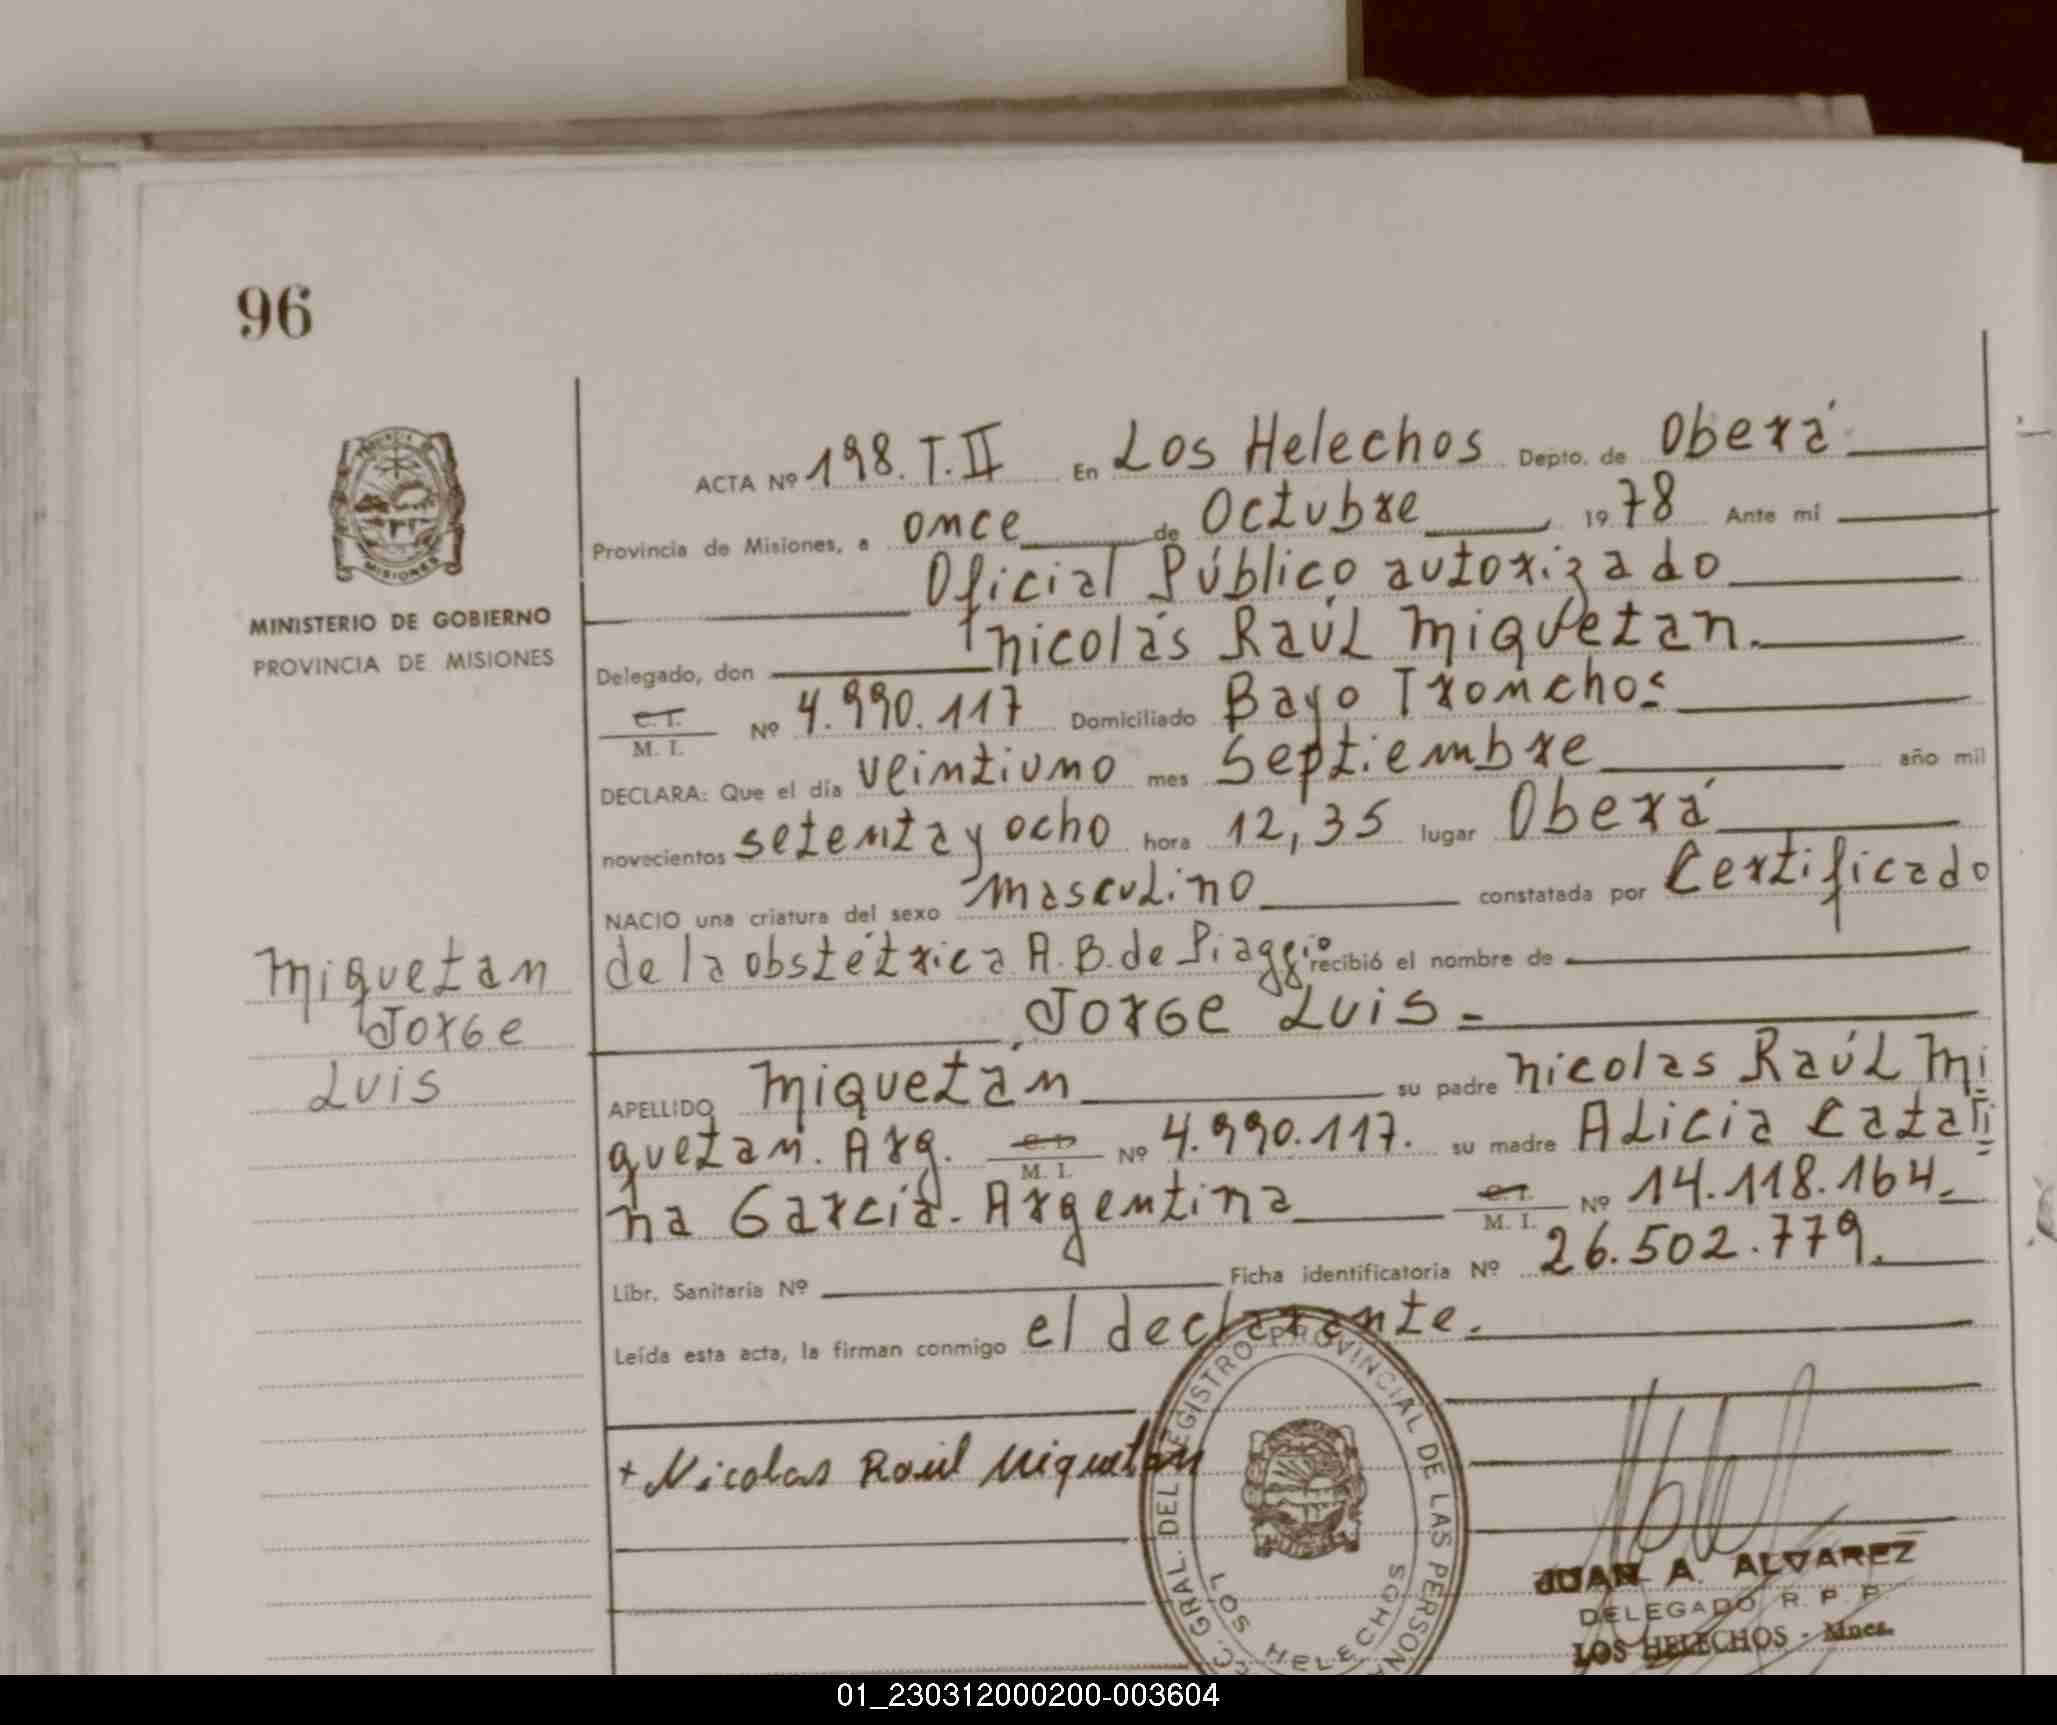 96
MURCIA D
MISIONES
MINISTERIO DE GOBIERNO
PROVINCIA DE MISIONES
Miquetan
Jorge
Luis
ACTA Nº 198. T. II En Los Helechos Depto. de Oberá
Provincia de Misiones, a once de Octubre 1978 Ante mi
Oficial Público autorizado
Delegado, don Nicolás Raúl Miquetan.
C. I.
M. I. Nº 4.990.117 Domiciliado Bayo Tronchos
DECLARA: Que el día veintiuno mes Septiembre año mil
novecientos setenta y ocho hora 12,35 lugar Oberá
NACIO una criatura del sexo masculino constatada por Certificado
de la obstétrica A. B. de Piaggio recibió el nombre de
Jorge Luis.-
APELLIDO Miquetán su padre Nicolas Raúl Mi
quetan. Arg. C. I. M. I. Nº 4.990.117. su madre Alicia Catali
na García. Argentina C. I. M. I. Nº 14.118.164.
Libr. Sanitaria Nº Ficha identificatoria Nº 26.502.779.
Leída esta acta, la firman conmigo el declarante.
+ Nicolas Raúl Miquetan
GRAL. DEL REGISTRO PROVINCIAL DE LAS PERSON
LOS HELECHOS
JUAN A. ALVAREZ
DELEGADO R. P. P.
LOS HELECHOS - Mnes.
01_230312000200-003604